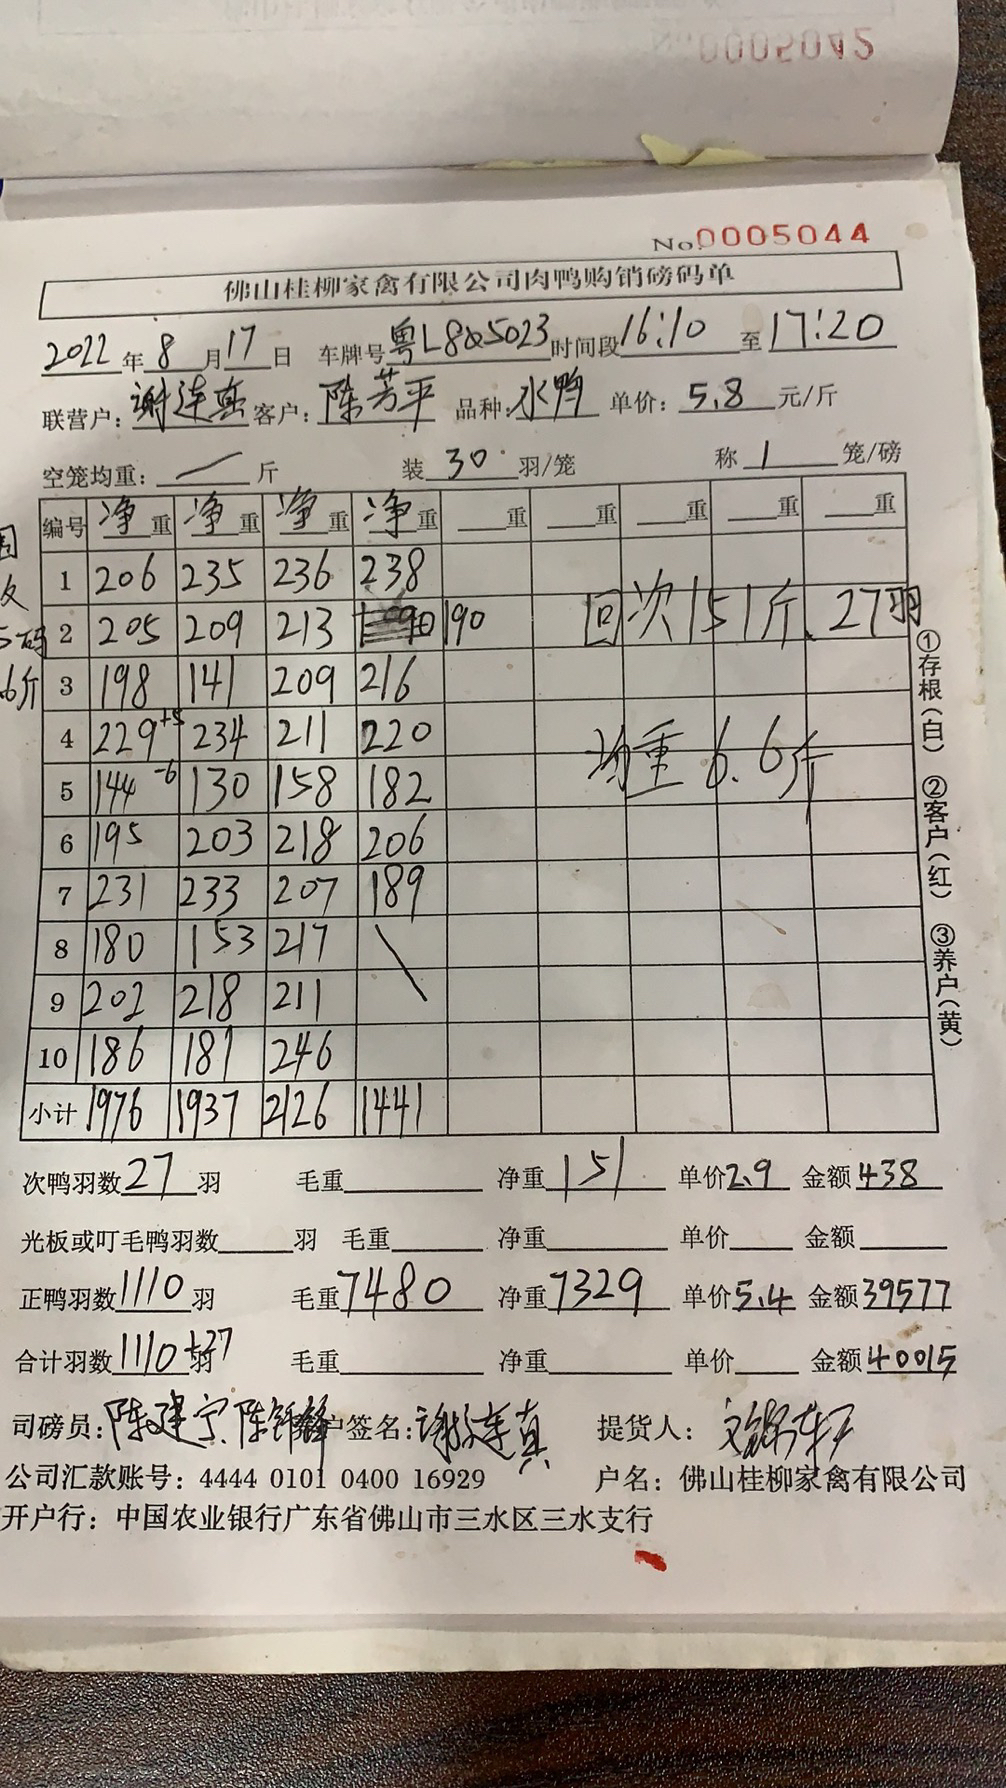 No.0005042
No.0005044
佛山桂柳家禽有限公司肉鸭购销磅码单
2022年8月17日 车牌号粤L8Q5023时间段16:10至17:20
联营户:谢连真 客户:陈芳平 品种:水鸭 单价:5.8元/斤
空笼均重:／斤 装30羽/笼 称1笼/磅
编号 净重 净重 净重 净重 重 重 重 重 重
1 206 235 236 238
2 205 209 213 190 回次151斤.27羽
3 198 141 209 216
4 229+5 234 211 220 均重6.6斤
5 144-6 130 158 182
6 195 203 218 206
7 231 233 207 189
8 180 153 217 \
9 202 218 211
10 186 181 246
小计 1976 1937 2126 1441
次鸭羽数27羽 毛重 净重151 单价2.9 金额438
光板或叮毛鸭羽数 羽 毛重 净重 单价 金额
正鸭羽数1110羽 毛重7480 净重7329 单价5.4 金额39577
合计羽数1110+27羽 毛重 净重 单价 金额40015
司磅员:陈建宁.陈 户签名:谢连真 提货人:
公司汇款账号:4444 0101 0400 16929 户名:佛山桂柳家禽有限公司
开户行:中国农业银行广东省佛山市三水区三水支行
①存根(白) ②客户(红) ③养户(黄)
码
6斤